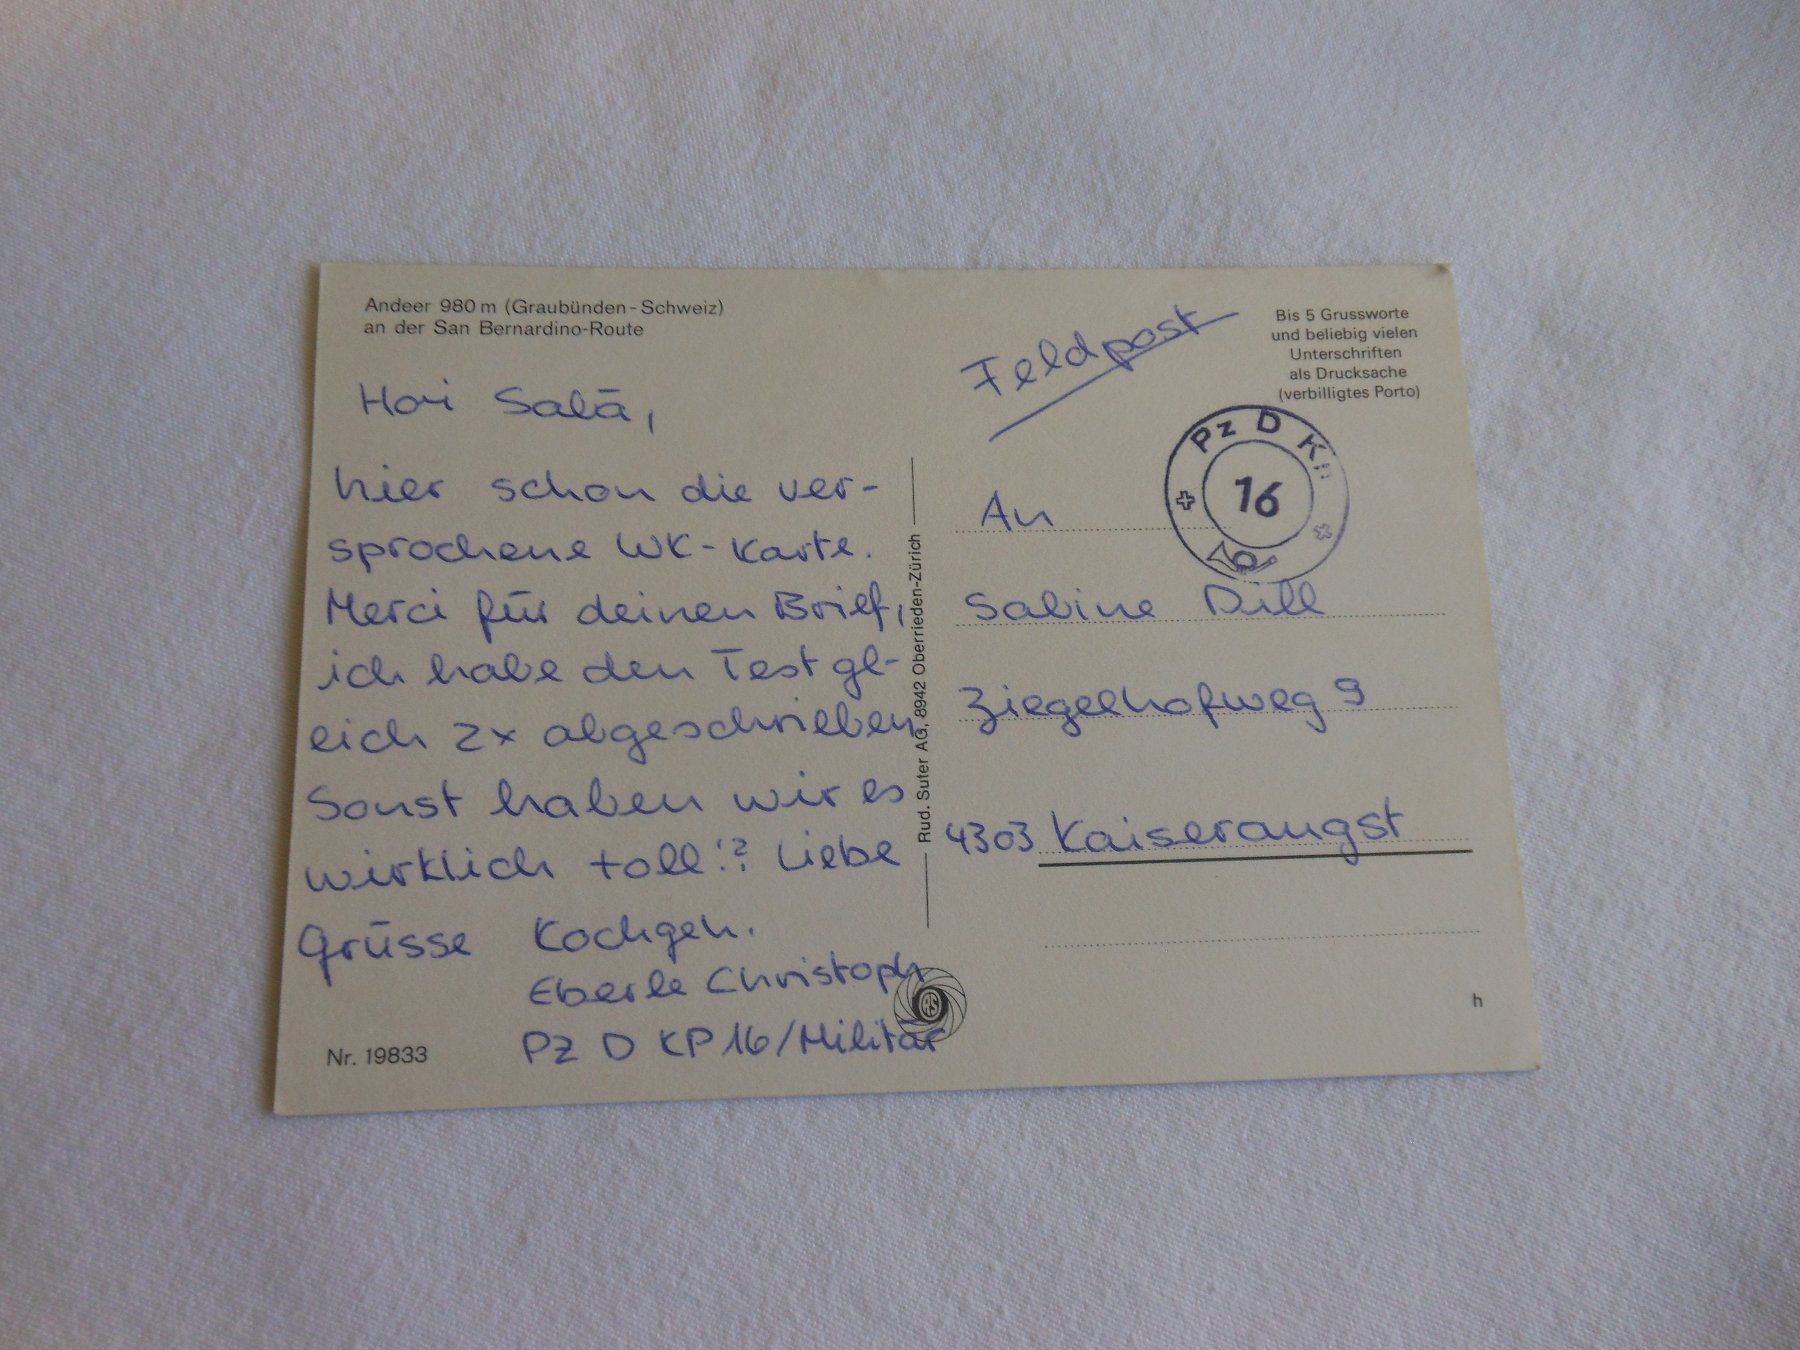 Andeer 980 m (Graubünden-Schweiz)
an der San Bernardino-Route
Hoi Salä,
hier schon die ver-
sprochene WK-Karte.
Merci für deinen Brief,
ich habe den Test gl-
eich 2x abgeschrieben
Sonst haben wir es
wirklich toll!? Liebe
Grüsse Kochgeh.
Eberle Christoph
PZ D KP 16/Militär
Nr. 19833
Rud. Suter AG, 8942 Oberrieden-Zürich
Feldpost
Bis 5 Grussworte
und beliebig vielen
Unterschriften
als Drucksache
(verbilligtes Porto)
Pz D Kp
16
An
Sabine Dill
Ziegelhofweg 9
4303 Kaiseraugst
h